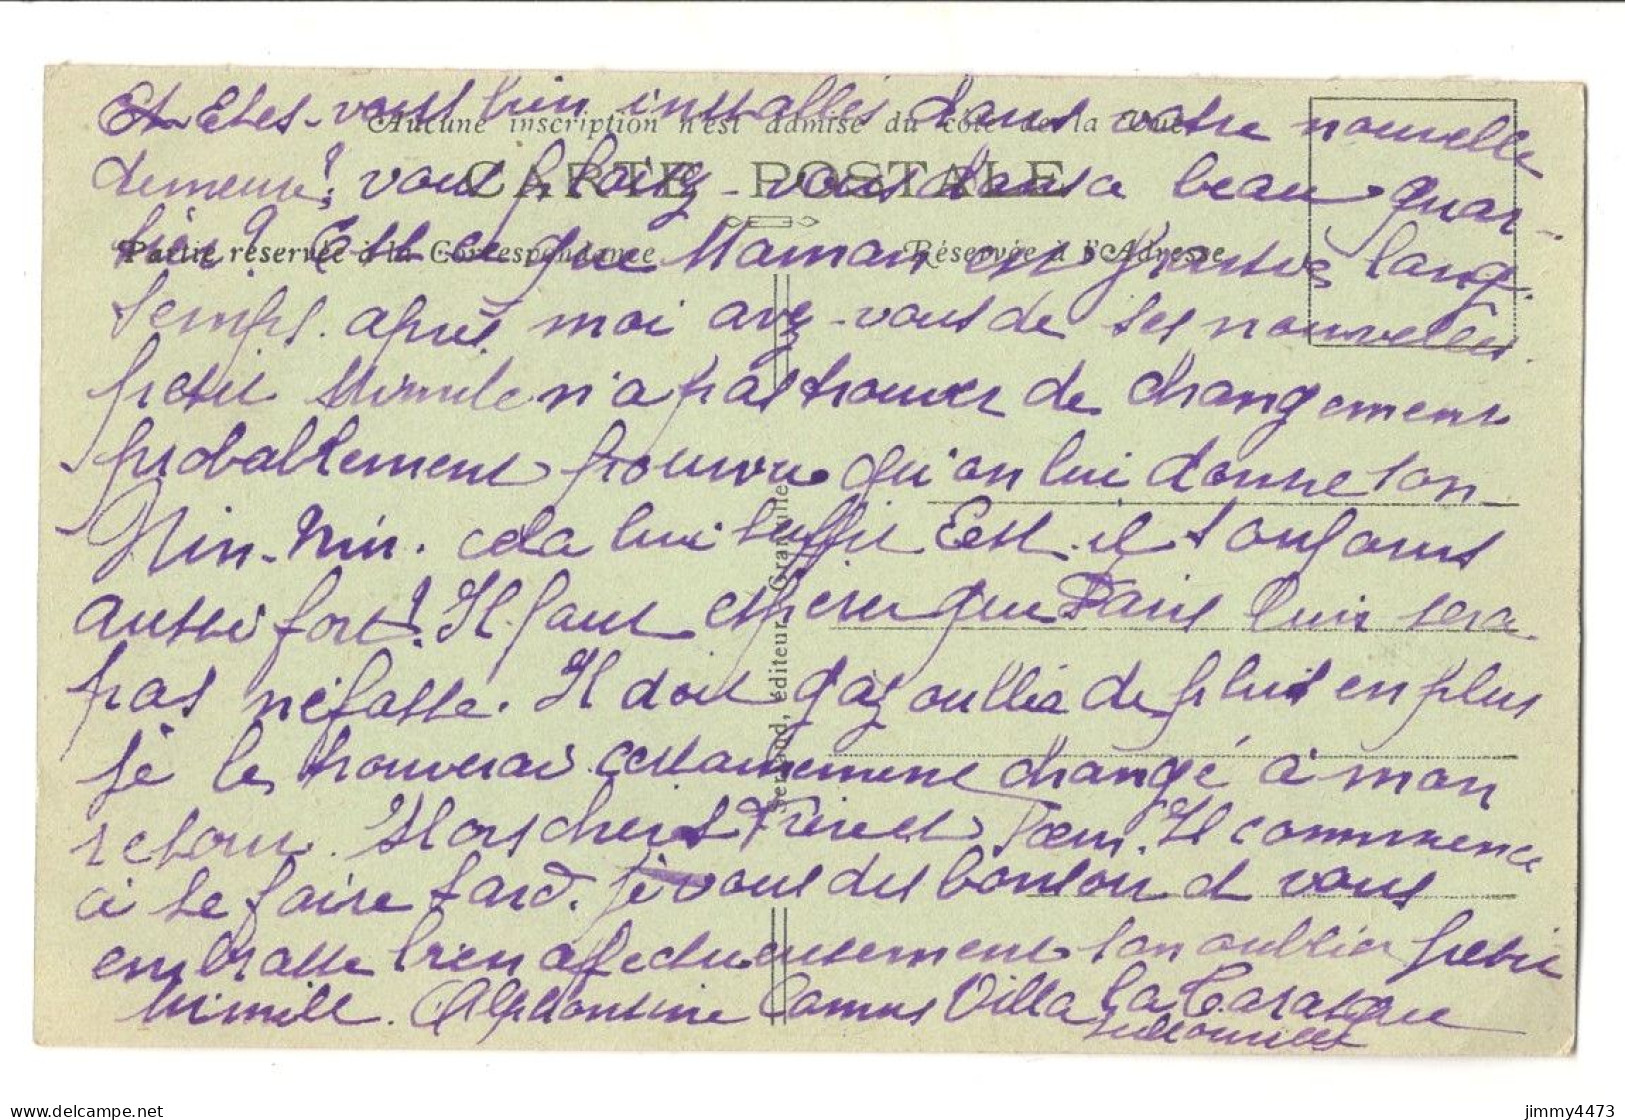 Aucune inscription n'est admise du côté de la Vue
CARTE POSTALE
Partie réservée à la Correspondance
Réservée à l'Adresse
éditeur, Granville
Etes-vous bien installés dans votre nouvelle
demeure? vous plaisez-vous dans ce beau quar-
tier? Est-ce que Maman est restée long-
temps après moi avez-vous de ses nouvelles
petit Mimile n'a pas trouver de changement
probablement pourvu qu'on lui donne son
Nin-Nin. cela lui suffit Est-il toujours
aussi fort? Il faut espérer que Paris lui sera
pas néfaste. Il doit gazouller de plus en plus
je le trouverai certainement changé à mon
retour. Frère et Sœur. Il commence
à se faire tard. je vous dis bonsoir et vous
embrasse bien affectueusement san oublier petit
Mimille. Alphonsine Camus Villa La
jimmy4473